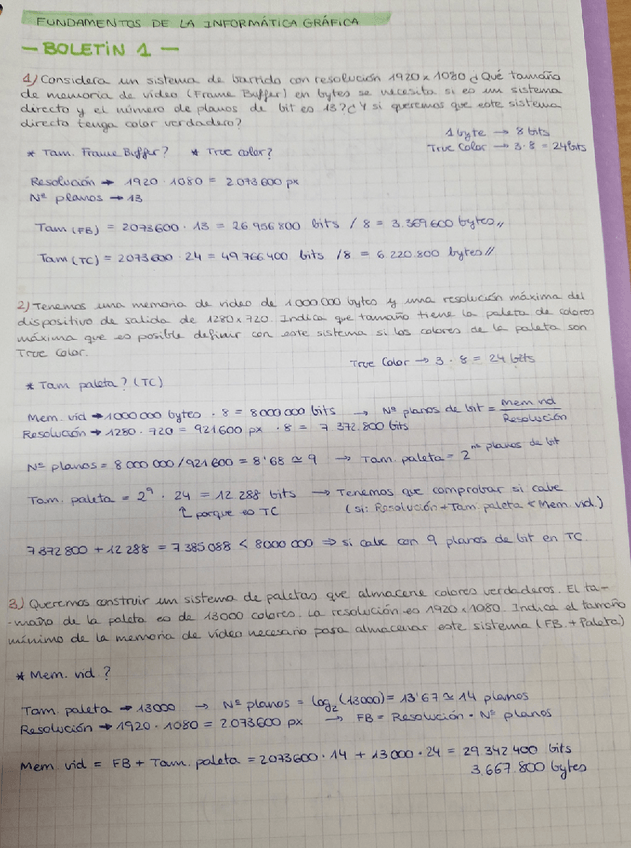 FUNDAMENTOS DE LA INFORMÁTICA GRÁFICA
- BOLETÍN 1 -
1) Considera un sistema de barrido con resolución 1920 x 1080 ¿Qué tamaño
de memoria de video (Frame Buffer) en bytes se necesita si es un sistema
directo y el número de planos de bit es 13? ¿Y si queremos que este sistema
directo tenga color verdadero?
1 byte → 8 bits
True Color → 3·8 = 24 bits
* Tam. Frame Buffer? * True color?
Resolución → 1920 · 1080 = 2 073 600 px
Nº planos → 13
Tam (FB) = 2073600 · 13 = 26 956 800 bits / 8 = 3.369.600 bytes //
Tam (TC) = 2073600 · 24 = 49 766 400 bits / 8 = 6 220.800 bytes //
2) Tenemos una memoria de video de 1 000 000 bytes y una resolución máxima del
dispositivo de salida de 1280 x 720. Indica que tamaño tiene la paleta de colores
máxima que es posible definir con este sistema si los colores de la paleta son
True Color.
True Color → 3 · 8 = 24 bits
* Tam paleta? (TC)
Mem. vid → 1000 000 bytes · 8 = 8 000 000 bits → Nº planos de bit = Mem vid / Resolución
Resolución → 1280 · 720 = 921 600 px · 8 = 7 372.800 bits
Nº planos = 8 000 000 / 921 600 = 8'68 ≃ 9 → Tam. paleta = 2^nº planos de bit
Tam. paleta = 2^9 · 24 = 12 288 bits → Tenemos que comprobar si cabe
↳ porque es TC (si: Resolución + Tam. paleta < Mem. vid.)
7372800 + 12 288 = 7 385 088 < 8000 000 ⇒ si cabe con 9 planos de bit en TC
3) Queremos construir un sistema de paletas que almacene colores verdaderos. El ta-
-maño de la paleta es de 13000 colores. La resolución es 1920 x 1080. Indica el tamaño
mínimo de la memoria de video necesario para almacenar este sistema (FB + Paleta)
* Mem. vid ?
Tam. paleta → 13000 → Nº planos = log2 (13000) = 13'67 ≃ 14 planos
Resolución → 1920 · 1080 = 2 073 600 px → FB = Resolución · Nº planos
Mem. vid = FB + Tam. paleta = 2073600 · 14 + 13 000 · 24 = 29 342 400 bits
3.667.800 bytes